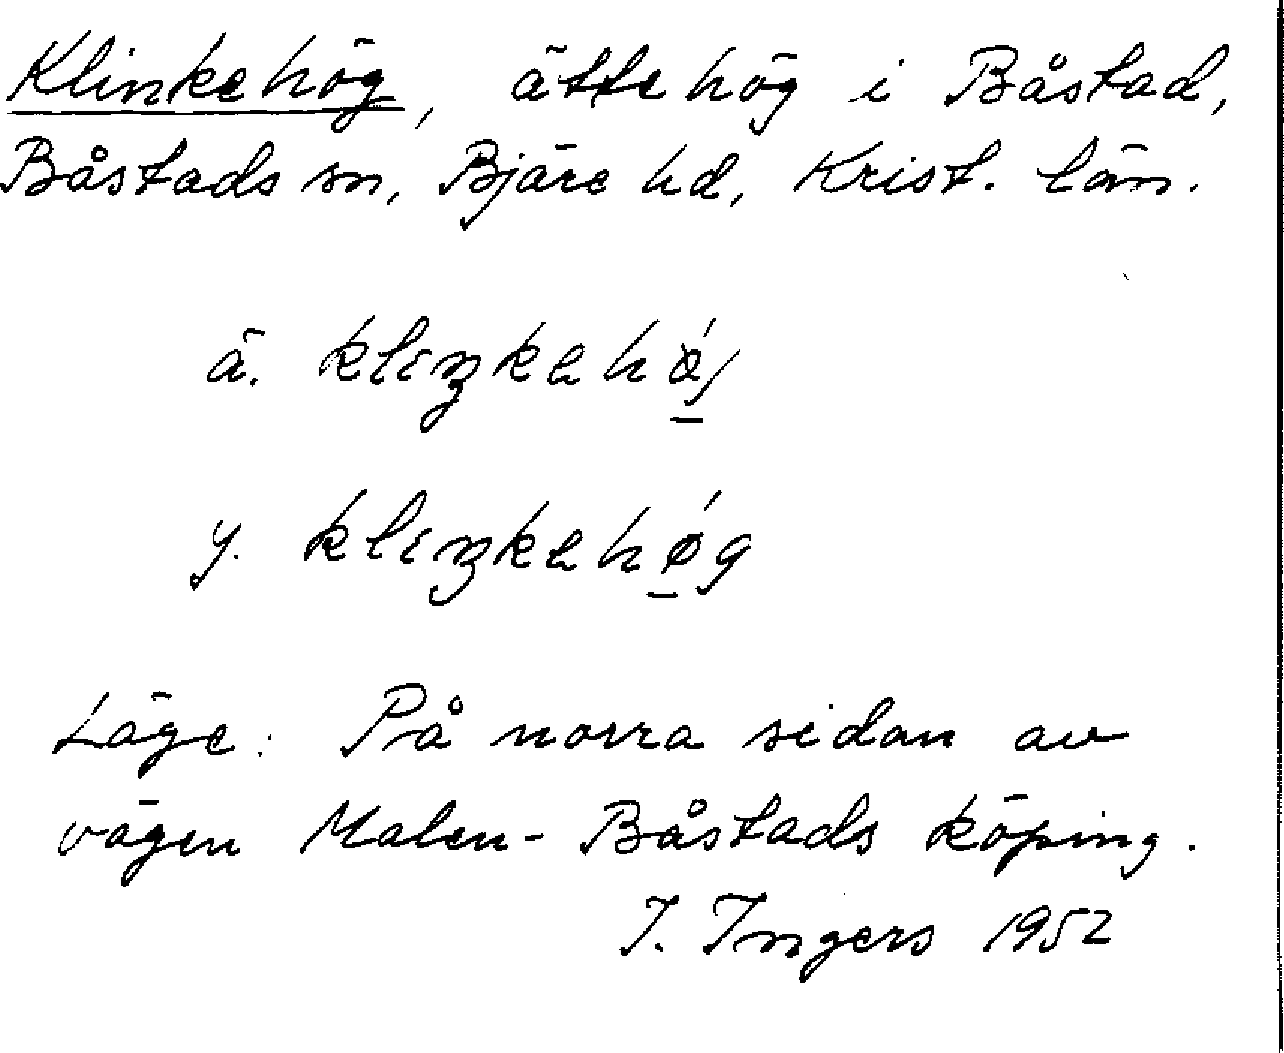 Klinkehög, ättehög i Båstad,
Båstads sn, Bjäre hd, Krist. län.
ä. klıŋkehǿ̱j
y. klıŋkehǿ̱g
Läge: På norra sidan av
vägen Malen- Båstads köping.
I. Ingers 1952